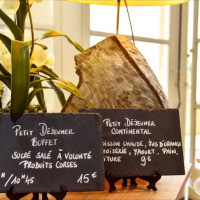 Petit Déjeuner
Buffet
Sucré salé à volonté
Produits Corses
15€
Petit Déjeuner
Continental
chaude, jus d'orange
yaourt, pain,
9€